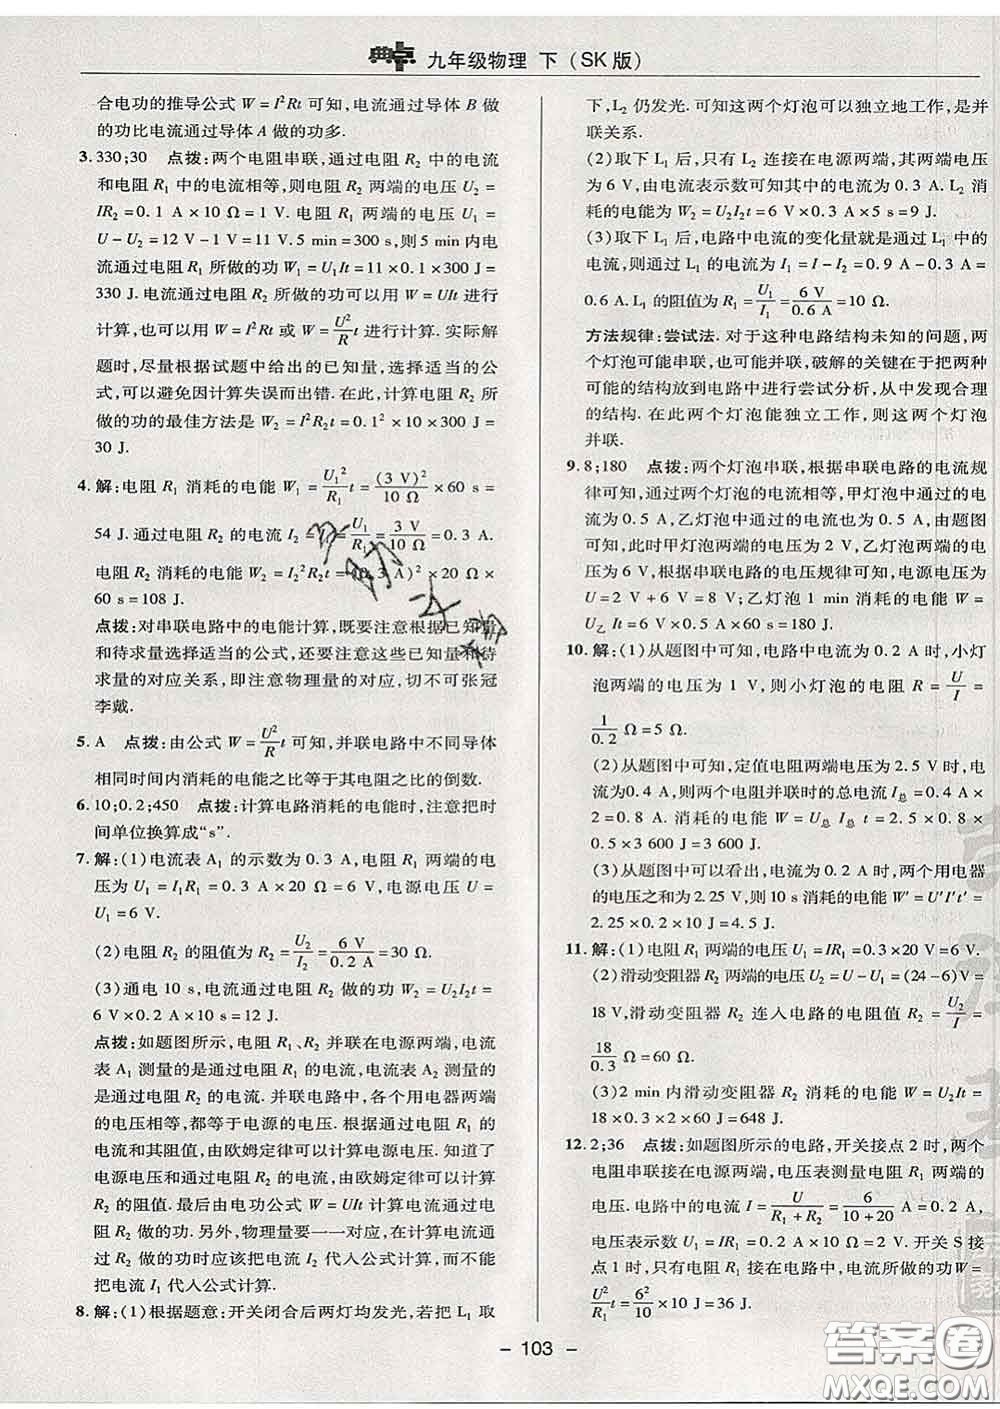 典点 九年级物理 下(SK版)
合电功的推导公式 W=I²Rt 可知,电流通过导体 B 做
的功比电流通过导体 A 做的功多.
3. 330;30 点拨:两个电阻串联,通过电阻 R₂ 中的电流
和电阻 R₁ 中的电流相等,则电阻 R₂ 两端的电压 U₂=
IR₂=0.1 A×10 Ω=1 V. 电阻 R₁ 两端的电压 U₁=
U-U₂=12 V-1 V=11 V. 5 min=300 s,则 5 min 内电
流通过电阻 R₁ 所做的功 W₁=U₁It=11×0.1×300 J=
330 J. 电流通过电阻 R₂ 所做的功可以用 W=UIt 进行
计算,也可以用 W=I²Rt 或 W=U²/R t 进行计算. 实际解
题时,尽量根据试题中给出的已知量,选择适当的公
式,可以避免因计算失误而出错. 在此,计算电阻 R₂ 所
做的功的最佳方法是 W₂=I²R₂t=0.1²×10×300 J=
30 J.
4. 解:电阻 R₁ 消耗的电能 W₁=U₁²/R₁ t=(3 V)²/10 Ω×60 s=
54 J. 通过电阻 R₂ 的电流 I₂=I₁=U₁/R₁=3 V/10 Ω=0.3 A.
电阻 R₂ 消耗的电能 W₂=I₂²R₂t=(0.3 A)²×20 Ω×
60 s=108 J.
点拨:对串联电路中的电能计算,既要注意根据已知量
和待求量选择适当的公式,还要注意这些已知量和待
求量的对应关系,即注意物理量的对应,切不可张冠
李戴.
5. A 点拨:由公式 W=U²/R t 可知,并联电路中不同导体
相同时间内消耗的电能之比等于其电阻之比的倒数.
6. 10;0.2;450 点拨:计算电路消耗的电能时,注意把时
间单位换算成“s”.
7. 解:(1)电流表 A₁ 的示数为 0.3 A,电阻 R₁ 两端的电
压为 U₁=I₁R₁=0.3 A×20 Ω=6 V,电源电压 U=
U₁=6 V.
(2)电阻 R₂ 的阻值为 R₂=U₂/I₂=6 V/0.2 A=30 Ω.
(3)通电 10 s,电流通过电阻 R₂ 做的功 W=U₂I₂t=
6 V×0.2 A×10 s=12 J.
点拨:如题图所示,电阻 R₁、R₂ 并联在电源两端,电流
表 A₁ 测量的是通过电阻 R₁ 的电流,电流表 A₂ 测量
的是通过电阻 R₂ 的电流. 并联电路中,各个用电器两端
的电压相等,都等于电源的电压. 根据通过电阻 R₁ 的
电流和其阻值,由欧姆定律可以计算电源电压. 知道了
电源电压和通过电阻 R₂ 的电流,由欧姆定律可以计算
电阻 R₂ 的阻值. 最后由电功公式 W=UIt 计算电流通过
电阻 R₂ 做的功. 另外,物理量要一一对应,在计算电流
通过 R₂ 做的功时应该把电流 I₂ 代人公式计算,而不能
把电流 I₁ 代人公式计算.
8. 解:(1)根据题意:开关闭合后两灯均发光,若把 L₁ 取
下,L₂ 仍发光. 可知这两个灯泡可以独立地工作,是并
联关系.
(2)取下 L₁ 后,只有 L₂ 连接在电源两端,其两端电压
为 6 V,由电流表示数可知其中的电流为 0.3 A. L₂ 消
耗的电能为 W₂=U₂I₂t=6 V×0.3 A×5 s=9 J.
(3)取下 L₁ 后,电路中电流的变化量就是通过 L₁ 中的
电流,则通过 L₁ 的电流为 I₁=I-I₂=0.9 A-0.3 A=
0.6 A. L₁ 的阻值为 R₁=U₁/I₁=6 V/0.6 A=10 Ω.
方法规律:尝试法. 对于这种电路结构未知的问题,两
个灯泡可能串联,也可能并联,破解的关键在于把两种
可能的结构放到电路中进行尝试分析,从中发现合理
的结构. 在此两个灯泡能独立工作,则这两个灯泡
并联.
9. 8;180 点拨:两个灯泡串联,根据串联电路的电流规
律可知,通过两个灯泡的电流相等,甲灯泡中通过的电
流为 0.5 A,乙灯泡中通过的电流也为 0.5 A,由题图
可知,此时甲灯泡两端的电压为 2 V,乙灯泡两端的电压
为 6 V,根据串联电路的电压规律可知,电源电压为
U=2 V+6 V=8 V;乙灯泡 1 min 消耗的电能 W=
U乙It=6 V×0.5 A×60 s=180 J.
10. 解:(1)从题图中可知,电路中电流为 0.2 A 时,小灯
泡两端的电压为 1 V,则小灯泡的电阻 R=U/I=
1/0.2 Ω=5 Ω.
(2)从题图中可知,定值电阻两端电压为 2.5 V 时,电
流为 0.4 A,则两个电阻并联时的总电流 I总=0.4 A×
2=0.8 A. 消耗的电能 W=U总 I总 t=2.5×0.8×
0.5×3 600 J=3 600 J.
(3)从题图中可以看出,电流为 0.2 A 时,两个用电器
的电压之和为 2.25 V,则 10 s 消耗的电能 W′=U′I′t′=
2.25×0.2×10 J=4.5 J.
11. 解:(1)电阻 R₁ 两端的电压 U₁=IR₁=0.3×20 V=6 V.
(2)滑动变阻器 R₂ 两端的电压 U₂=U-U₁=(24-6)V=
18 V,滑动变阻器 R₂ 连入电路的电阻值 R₂=U₂/I=
18/0.3 Ω=60 Ω.
(3)2 min 内滑动变阻器 R₂ 消耗的电能 W=U₂It=
18×0.3×2×60 J=648 J.
12. 2;36 点拨:如题图所示的电路,开关接点 2 时,两个
电阻串联接在电源两端,电压表测量电阻 R₁ 两端的
电压. 电路中的电流 I=U/(R₁+R₂)=6/(10+20) A=0.2 A,
电压表示数 U₁=IR₁=0.2×10 V=2 V. 开关 S 接
点 1 时,只有电阻 R₁ 接在电路中,电流所做的功 W=
U²/R₁ t=6²/10×10 J=36 J.
- 103 -
答案圈
MXQE.COM